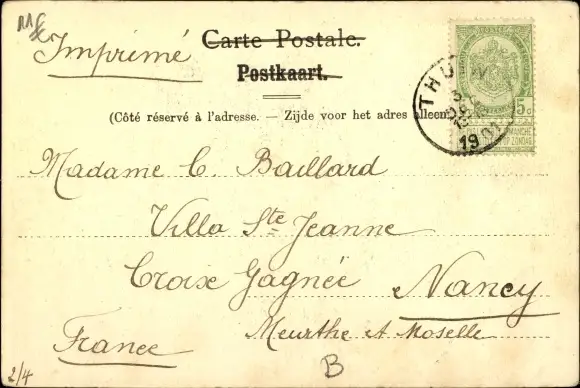 Imprimé
Carte Postale.
Postkaart.
(Côté réservé à l'adresse. — Zijde voor het adres alleen
THUIN
1901
5c
Madame C. Baillard
Villa Ste Jeanne
Croix Gagnée Nancy
Meurthe et Moselle
France
B
2/4